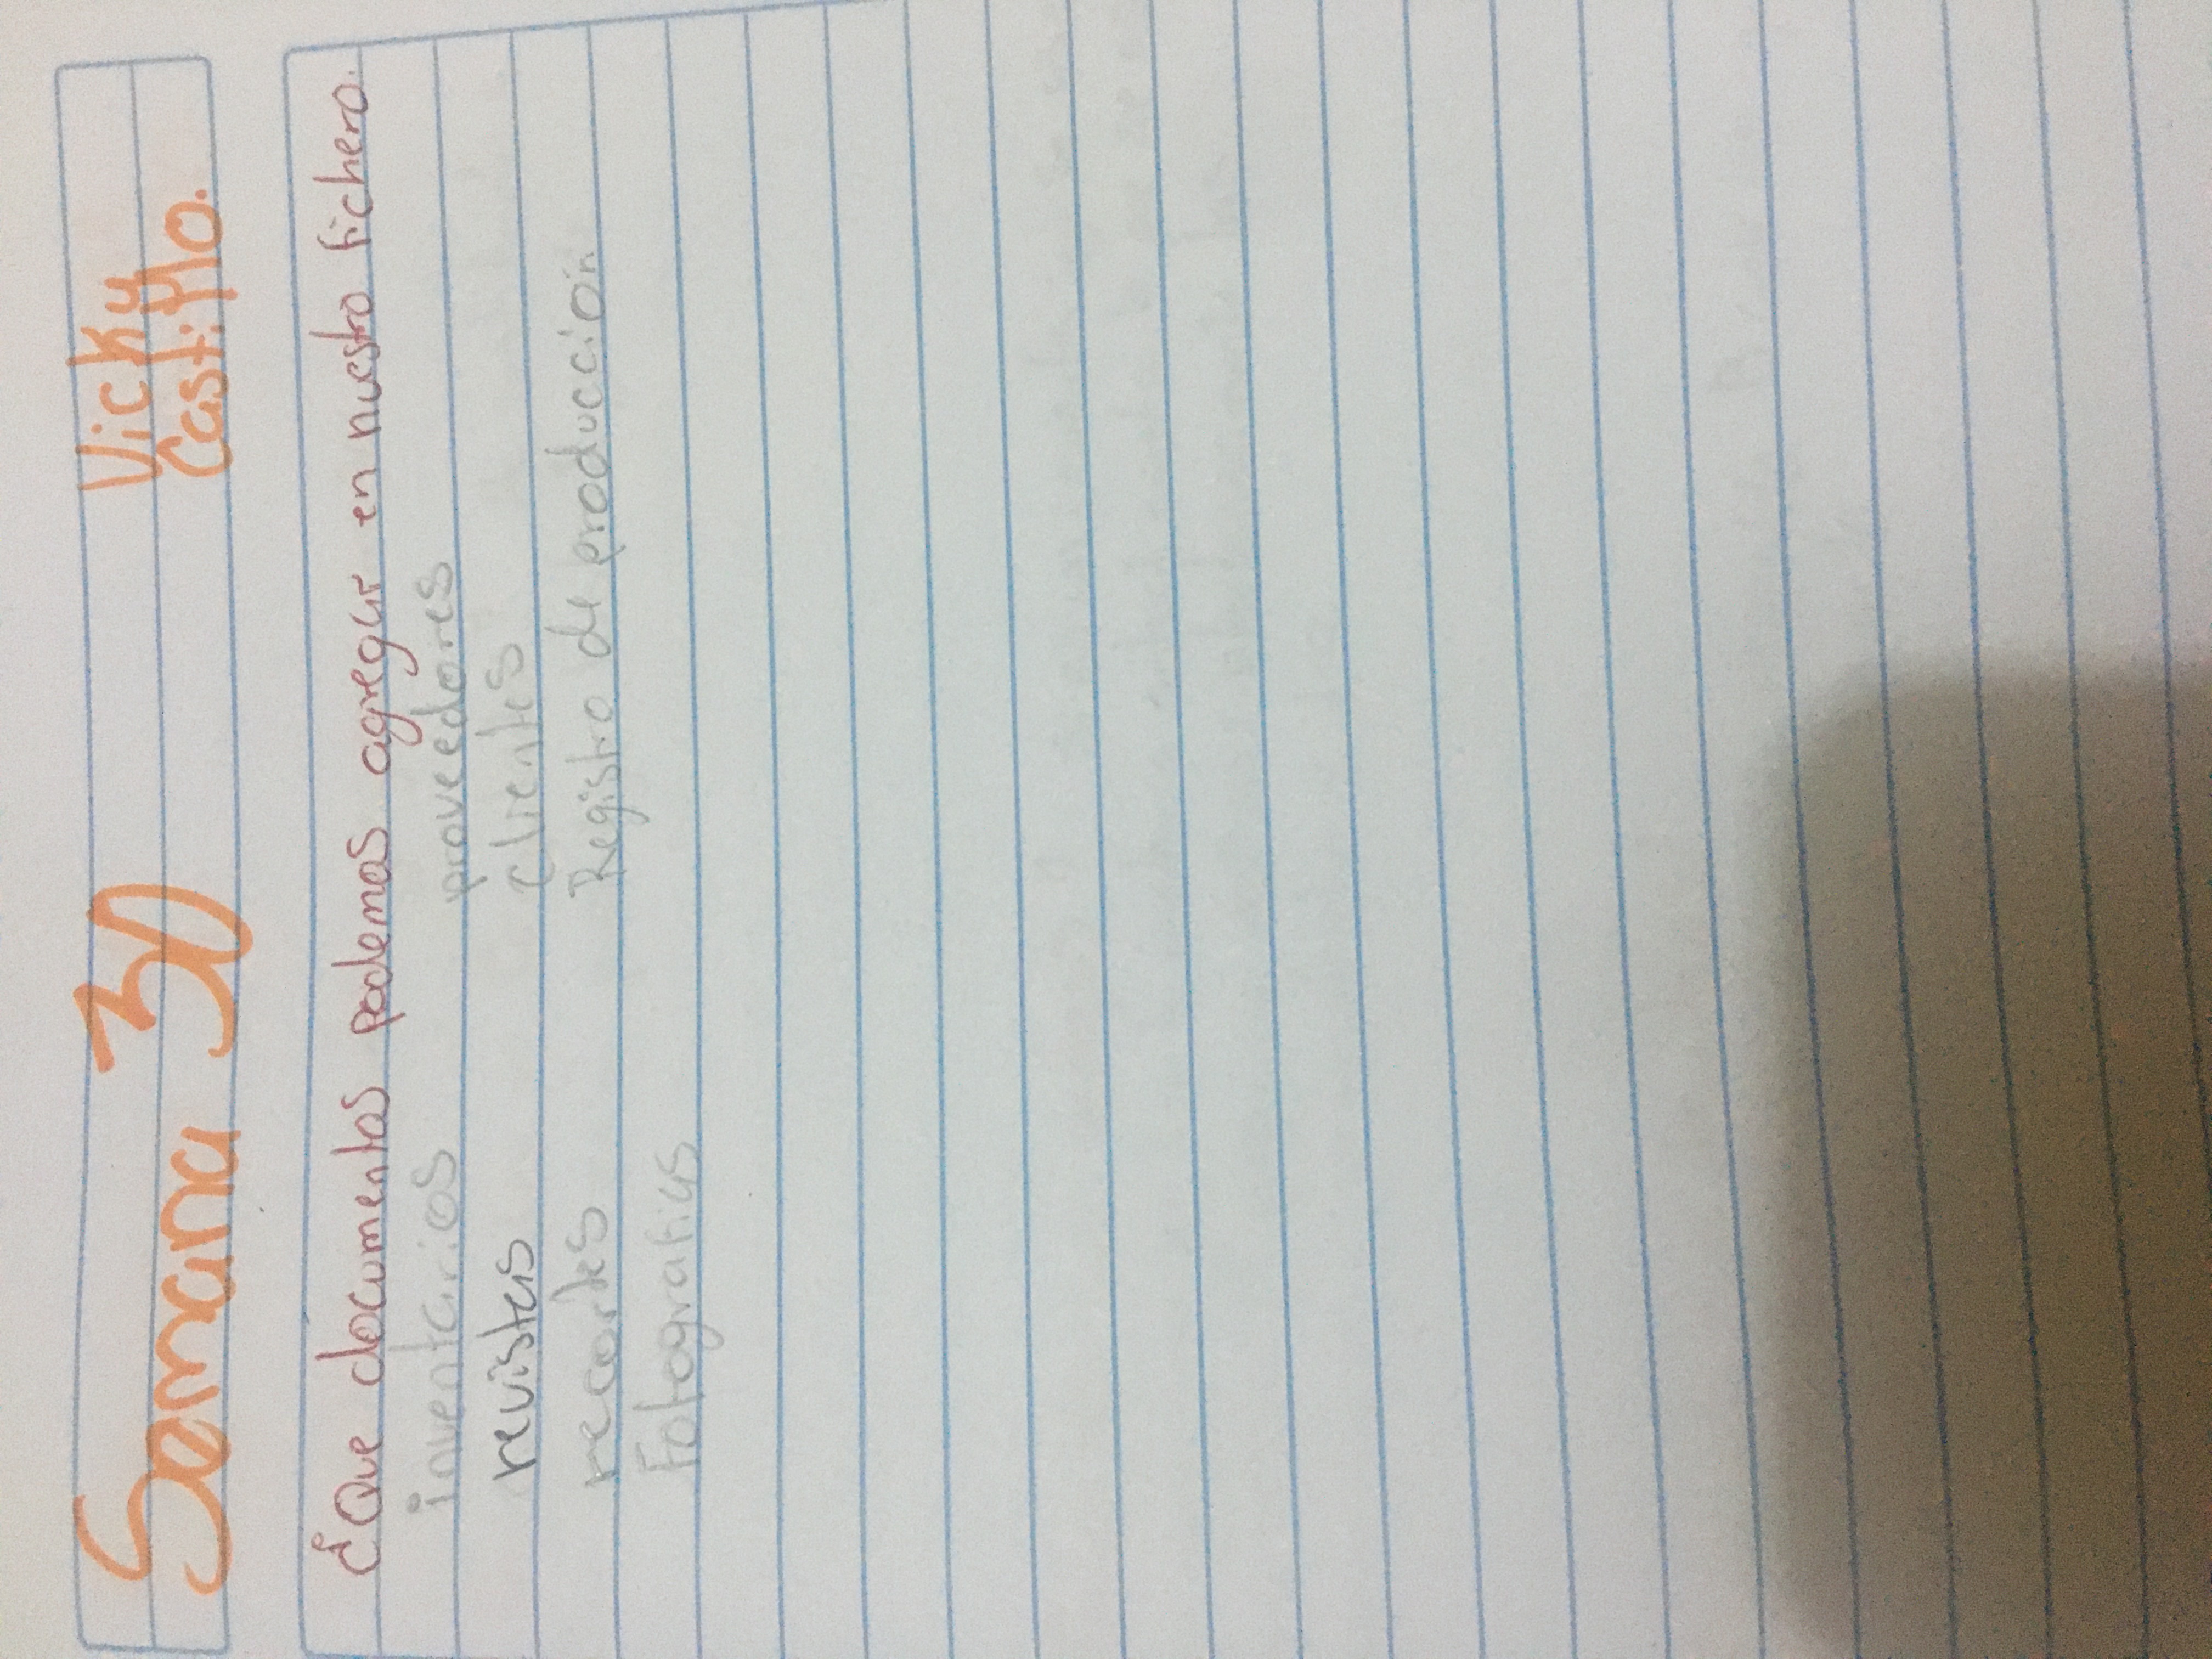 Semana 30 Vicky
Castillo.
¿Que documentos podemos agregar en nuestro fichero.
inventarios proveedores
revistas clientes
recortes Registro de producción
Fotografias